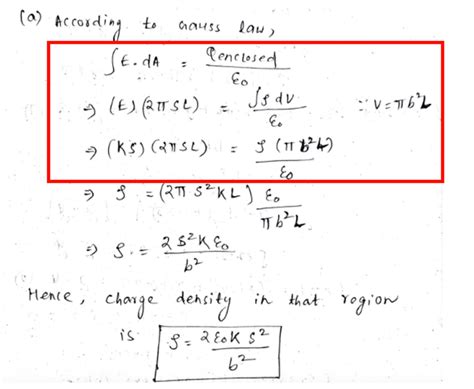 (a) According to Gauss law,
∫E.dA = Qenclosed / ε₀
⇒ (E) (2πSL) = ∫ρdv / ε₀ ∵ V = πb²L
⇒ (KS) (2πSL) = ρ (πb²L) / ε₀
⇒ ρ = (2π S²KL) ε₀ / πb²L
⇒ ρ = 2S²Kε₀ / b²
Hence, charge density in that region
is ρ = 2ε₀K S² / b²